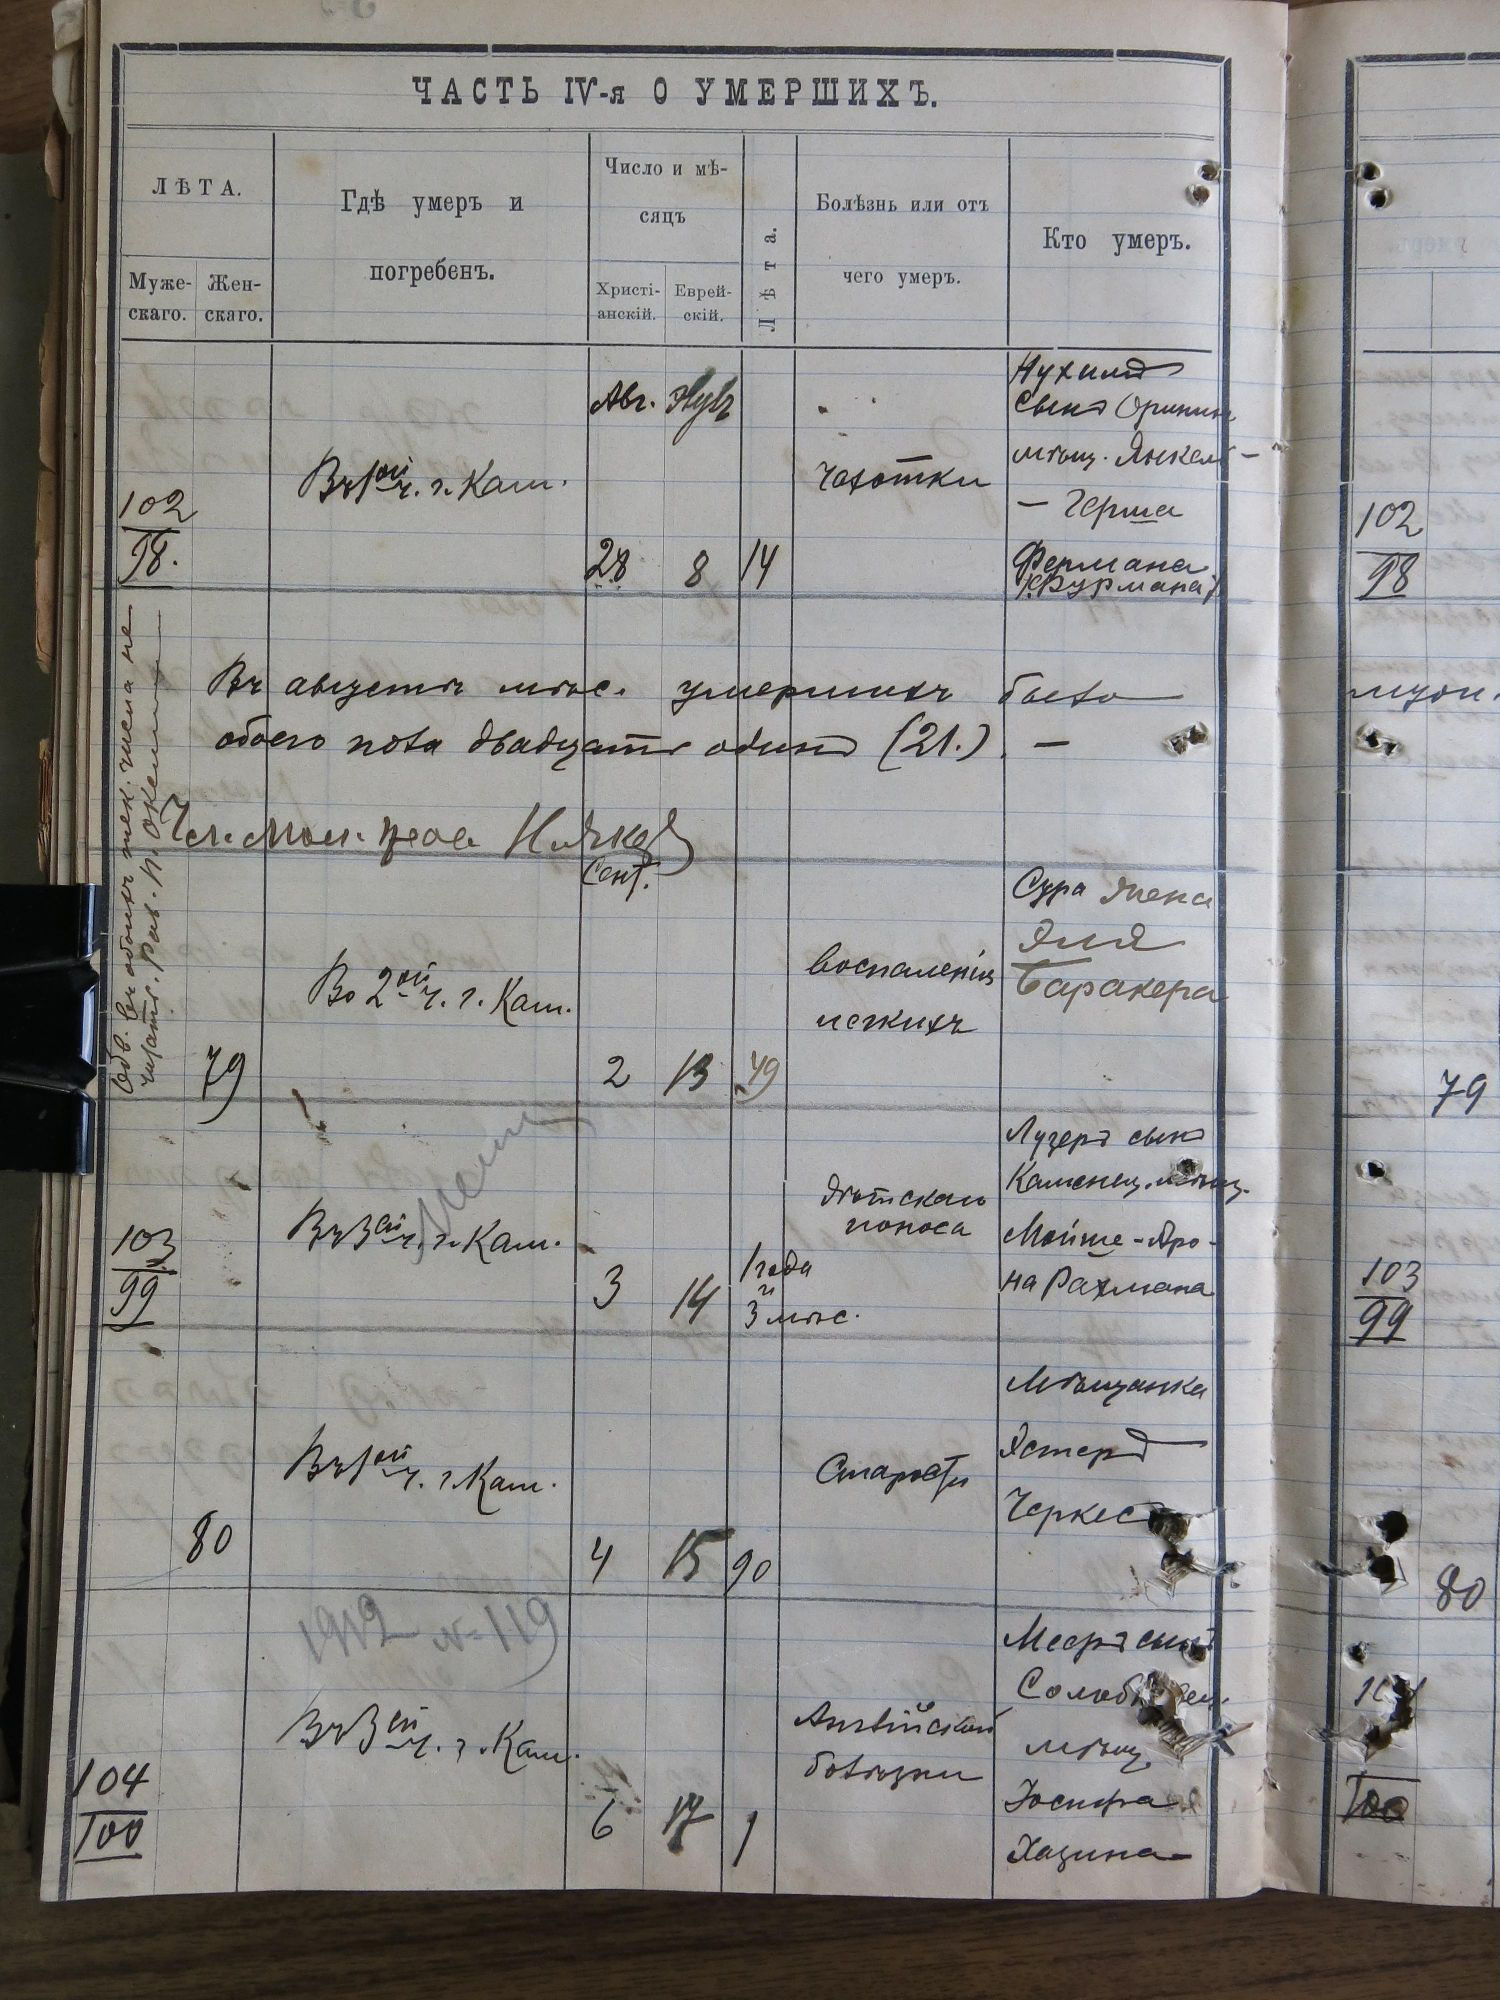 ЧАСТЬ IV-я О УМЕРШИХЪ.
ЛѢТА.
Муже-
скаго.
Жен-
скаго.
Гдѣ умеръ и
погребенъ.
Число и мѣ-
сяцъ
Христі-
анскій.
Еврей-
скій.
Лѣта.
Болѣзнь или отъ
чего умеръ.
Кто умеръ.
102
98.
Въ 1ой ч. г. Кам.
Авг.
28
8
14
Чахотки
Нухимъ
сынъ Оринин
мѣщ. Янкель-
- Герша
Фермана
(Фурмана)
Въ августѣ мѣс. умершихъ было
обоего пола двадцать одинъ (21.). —
79
Во 2ой ч. г. Кам.
Сент.
2
13
79
Воспаленія
легкихъ
Сура жена
Эля
Баракера
103
99
Въ 3ей ч. г. Кам.
3
14
1 года
и
3 мѣс.
Дѣтскаго
поноса
Лузеръ сынъ
Каменец. мѣщ.
Мойше-Аро-
на Рахмана
80
Въ 1ой ч. г. Кам.
4
15
90
Старости
Мѣщанка
Эстеръ
Черкес
1912 № 119
104
100
Въ 3ей ч. г. Кам.
6
17
1
Англійской
болѣзни
Мееръ сынъ
мѣщ.
Іосифа
Хазина
102
98
79
103
99
80
100